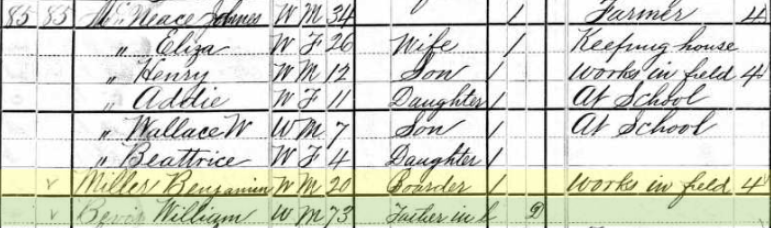 85 85 McNeace Johnes W M 34 / Farmer 4
" Eliza W F 26 Wife / Keeping house
" Henry W M 12 Son / Works in field 4
" Addie W F 11 Daughter / At School
" Wallace W W M 7 Son / At School
" Beattrice W F 4 Daughter /
✓ Miller Benjamin W M 20 Boarder / Works in field 4
✓ William W M 73 Father in l D